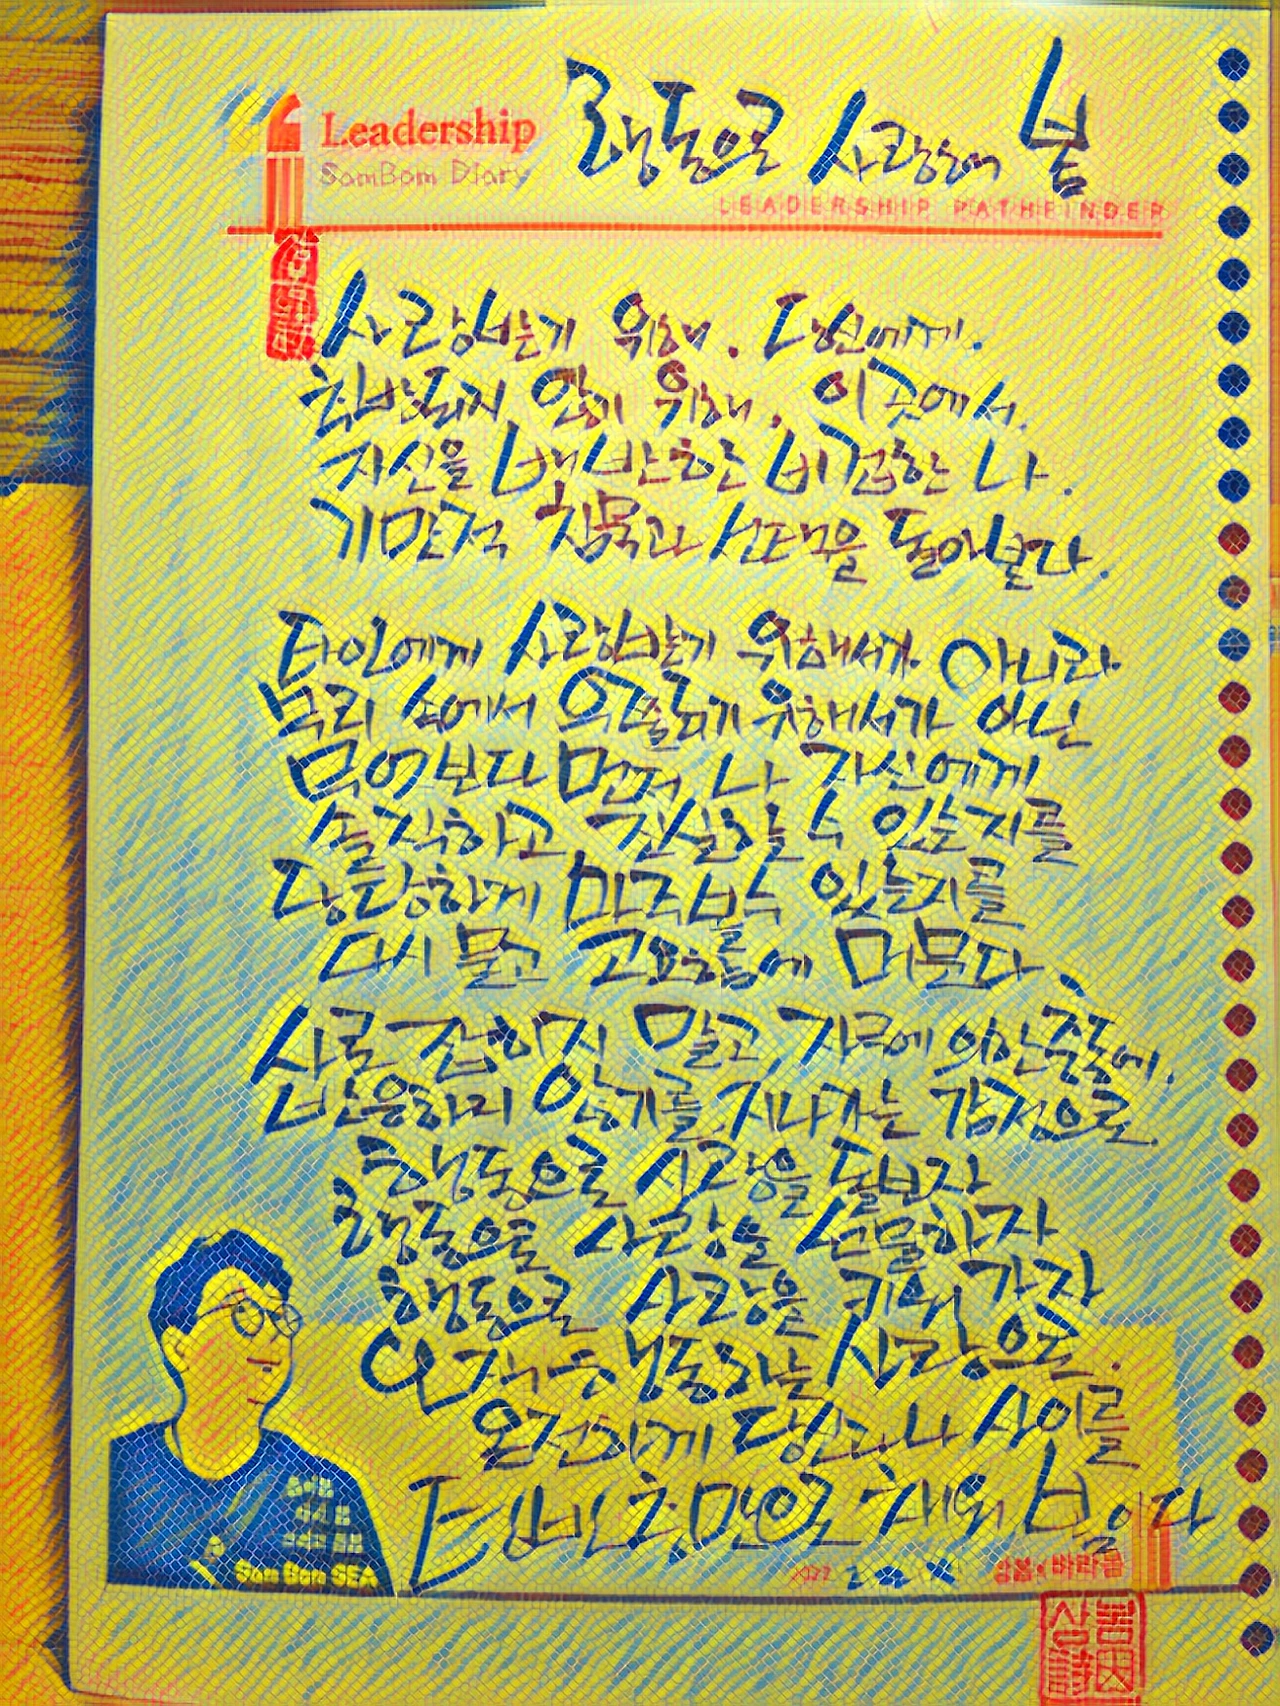 Leadership
SamBom Diary
행동으로 사랑해 봄
LEADERSHIP PATHFINDER
사랑받기 위해. 타인에게.
추방되지 않기 위해. 이곳에서.
자신을 배반한 비겁한 나.
기만적 침묵과 선택을 돌아본다.
타인에게 사랑받기 위해서가 아니라
무리 속에서 어울리기 위해서가 아닌
무엇보다 먼저 나 자신에게
솔직하고 진실할 수 있는지를
당당하게 마주볼 수 있는지를
다시 묻고 고요함에 머문다.
사로잡히지 말고, 자극에 의한 충동에.
반응하지 않기를, 지나가는 감정으로.
행동으로 사랑을 돌보자
행동으로 사랑을 선물하자
행동으로 사랑을 키워 가자
오직 행동하는 사랑으로.
온전하게 당신과 나 사이를
텅빈 충만으로 채워 봄이다
2022
Sam Bom SEA